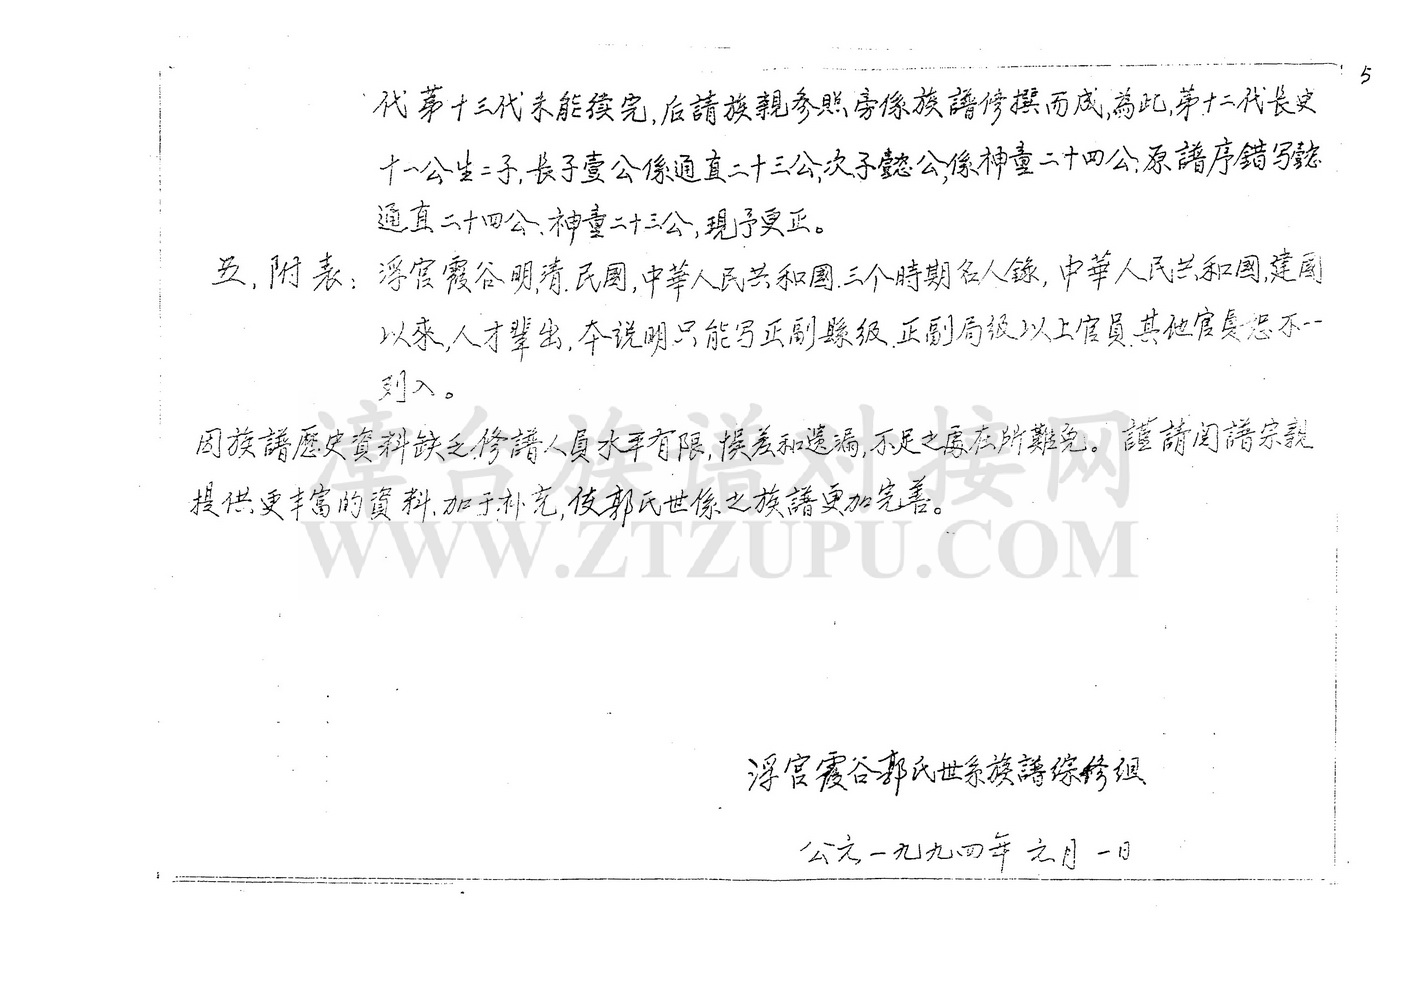 5
代第十三代未能续完,后請族親参照旁係族譜修撰而成,為此,第十二代長史
十一公生二子,長子壹公係通直二十三公,次子懿公,係神童二十四公,原譜序錯写懿
通直二十四公、神童二十三公,現予更正。
五、附表:浮宫霞谷明,清.民國,中華人民共和國.三个時期名人錄,中華人民共和國,建國
以來,人才輩出,本説明只能写正副縣級.正副局级以上官員.其他官員恕不一一
列入。
因族譜歷史資料缺乏.修譜人員水平有限,悮差和遗漏,不足之處在所難免。謹請閲譜宗親
提供更丰富的資料.加于补充,使郭氏世係之族譜更加完善。
漳台族谱对接网
WWW.ZTZUPU.COM
浮宫霞谷郭氏世系族譜綜修组
公元一九九四年元月一日